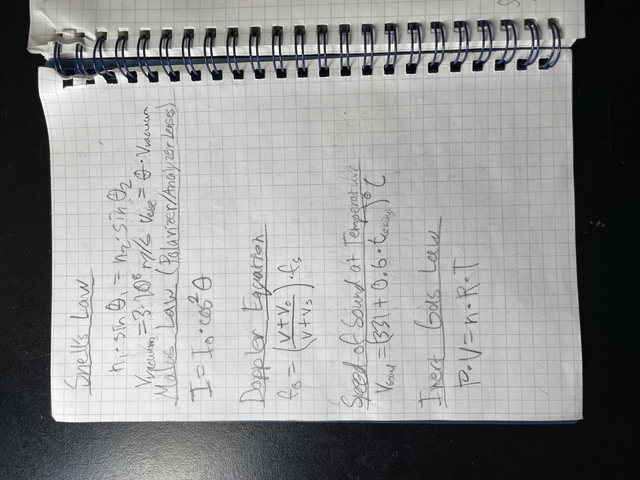 Snell's Law
n₁·sin θ₁ = n₂·sin θ₂
Vvacuum = 3·10⁸ m/s = θ·Vvacuum
Malus Law (Polarizer/Analyzer Lenses)
I = I₀·cos²θ
Doppler Equation
f₀ = (v+v₀ / v+vₛ)·fₛ
Speed of Sound at Temperature
Vsound = (331 + 0.6·t)°C
Inert Gas Law
P·V = n·R·T